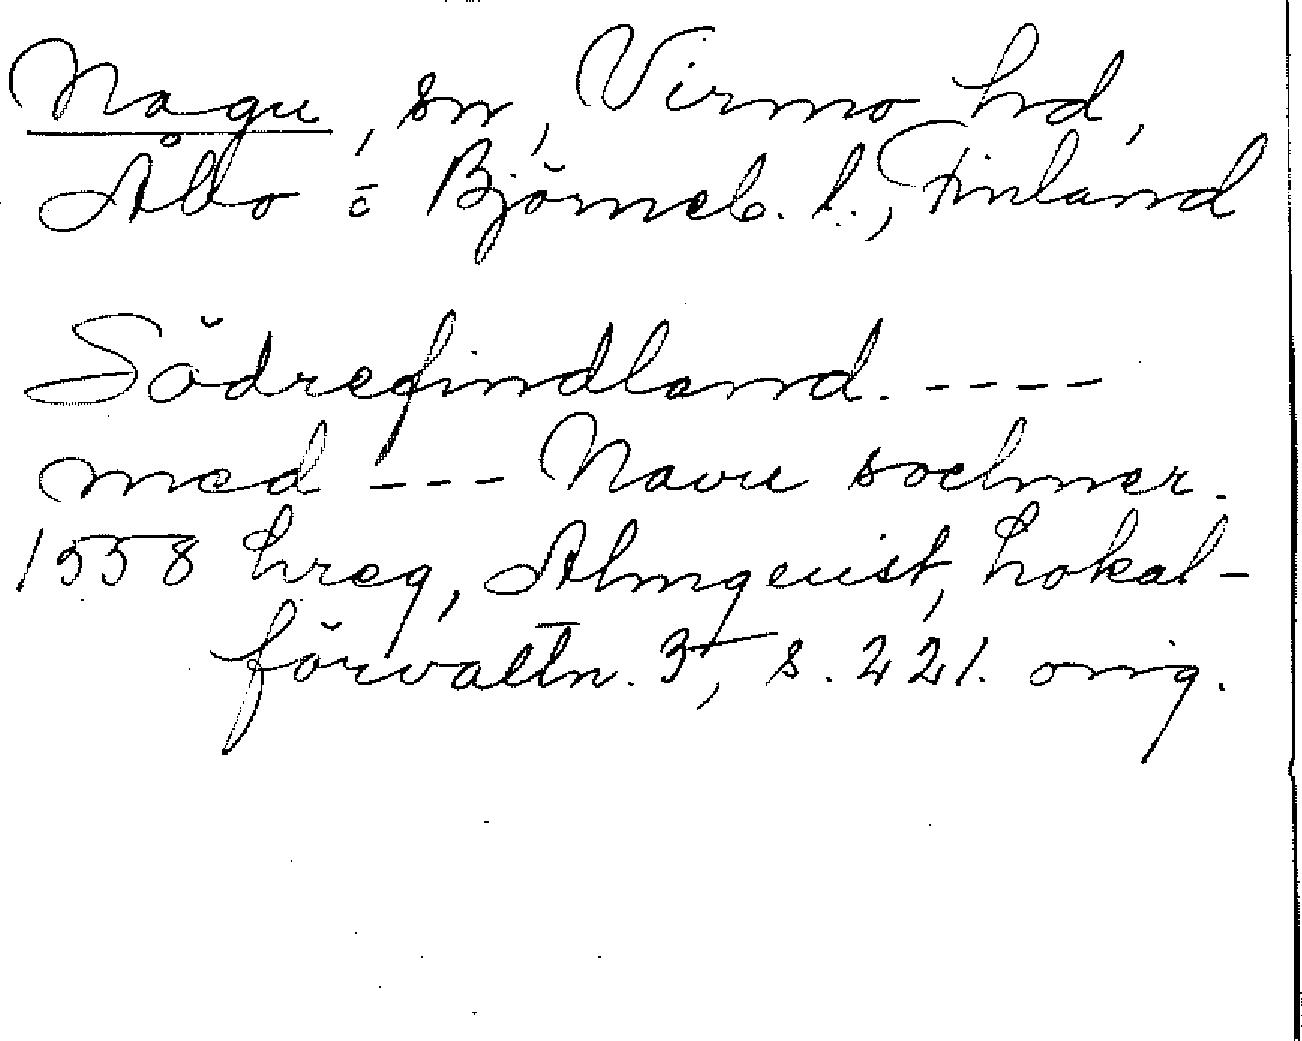 Nagu, sn, Virmo hd,
Åbo o Björneb. l., Finland
Södrefindland. ----
med --- Navu sochner.
1558 hreg, Almquist, Lokal-
förvaltn. 3, s. 221. orig.